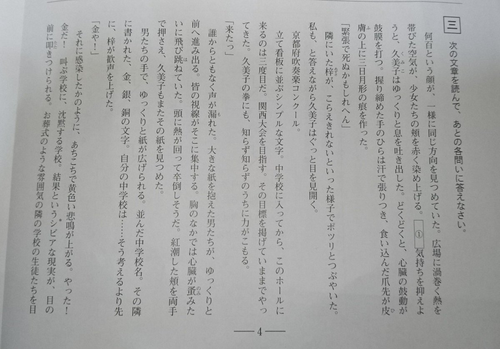 三　次の文章を読んで、あとの各問いに答えなさい。
何百という顔が、一様に同じ方向を見つめていた。広場に渦巻く熱を
帯びた空気が、少女たちの頬を赤く染め上げる。①気持ちを抑えよ
うと、久美子はゆっくりと息を吐き出した。どくどくと、心臓の鼓動が
鼓膜を打つ。握り締めた手のひらは汗で張りつき、食い込んだ爪先が皮
膚の上に三日月形の痕を作った。
「緊張で死ぬかもしれへん」
隣にいた梓が、こらえきれないといった様子でポツリとつぶやいた。
私も、と答えながら久美子はぐっと目を見開く。
京都府吹奏楽コンクール。
立て看板に並ぶシンプルな文字。中学校に入ってから、このホールに
来るのは三度目だ。関西大会を目指す。その目標を掲げていままでやっ
てきた。久美子の拳にも、知らず知らずのうちに力がこもる。
「来たっ」
誰からともなく声が漏れた。大きな紙を抱えた男たちが、ゆっくりと
前へ進み出る。皆の視線がそこに集中する。胸のなかでは心臓が歪みた
いに飛び跳ねていた。頭に熱が回って卒倒しそうだ。紅潮した頬を両手
で押さえ、久美子もまたその紙を見つめた。
男たちの手で、ゆっくりと紙が広げられる。並んだ中学校名。その隣
に書かれた、金、銀、銅の文字。自分の中学校は……そう考えるより先
に、梓が歓声を上げた。
「金や！」
それに感染したかのように、あちこちで黄色い悲鳴が上がる。やった！
金だ！　叫ぶ学校に、沈黙する学校。結果というシビアな現実が、目の
前に叩きつけられる。お葬式のような雰囲気の隣の学校の生徒たちを目
4